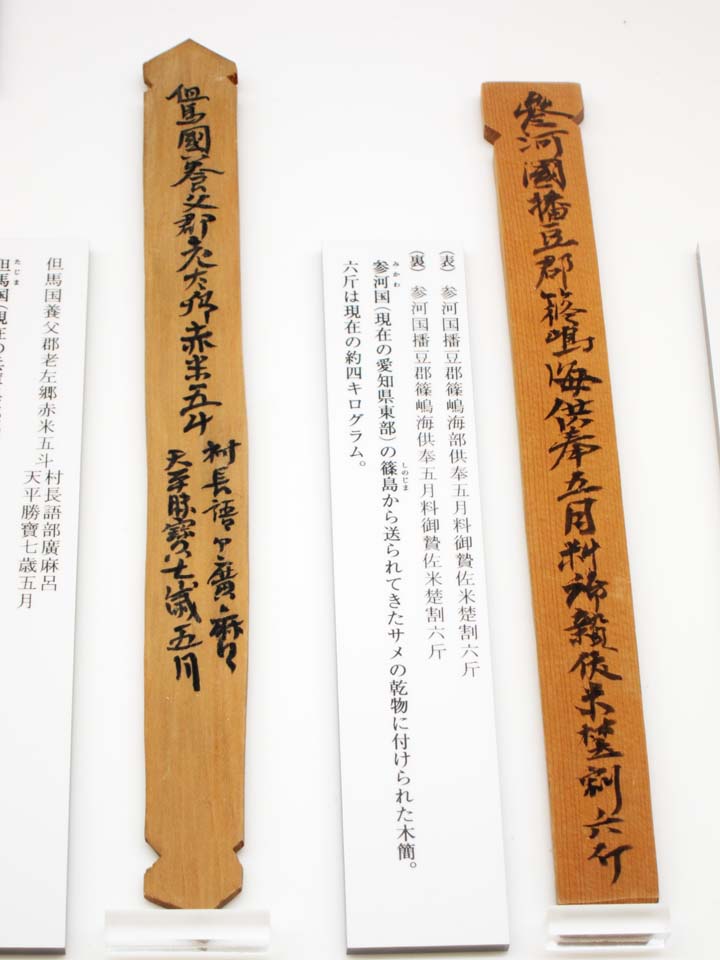 参河國播豆郡篠嶋海供奉五月料御贄佐米楚割六斤
(表) 参河国播豆郡篠嶋海部供奉五月料御贄佐米楚割六斤
(裏) 参河国播豆郡篠嶋海供奉五月料御贄佐米楚割六斤
みかわ
しのじま
参河国(現在の愛知県東部)の篠島から送られてきたサメの乾物に付けられた木簡。
六斤は現在の約四キログラム。
但馬國養父郡老左郷赤米五斗
村長語マ廣麻呂
天平勝寶七歳五月
但馬国養父郡老左郷赤米五斗
村長語部廣麻呂
天平勝寶七歳五月
たじま
但馬国(現在の